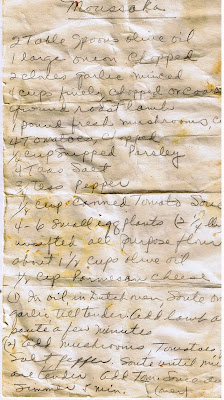 Moussaka
2 Table spoons olive oil
1 large onion chopped
2 cloves garlic minced
cup finely chopped or coars
ground roast lamb
1 pound fresh mushrooms, c
4 Tomatoes, chopped
cup snipped Parsley
Teas Salt
Teas Pepper
cup canned Tomato Sau
4-6 small eggplants (2
unsifted all purpose flour
about 1/2 cups olive oil
cup Parmesan cheese
(1) In oil, in Dutch oven, Saute
garlic till tender. Add lamb a
saute a few minutes
(2) add mushrooms Tomatoes
salt pepper. Saute until mu
are tender. Add Tom sauce
Simmer min. (over)